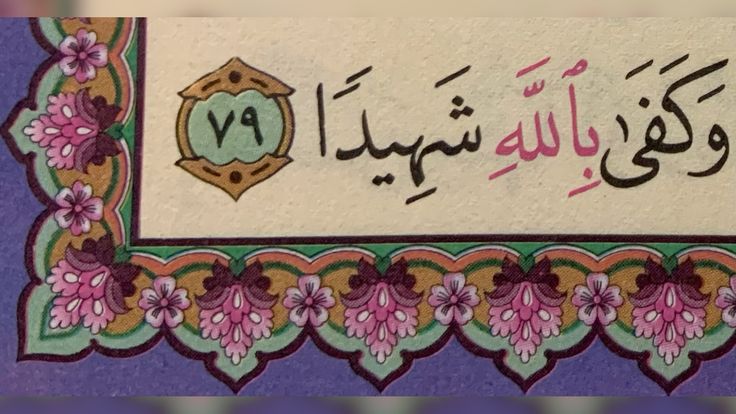 وَكَفَىٰ بِٱللَّهِ شَهِيدًا ٧٩